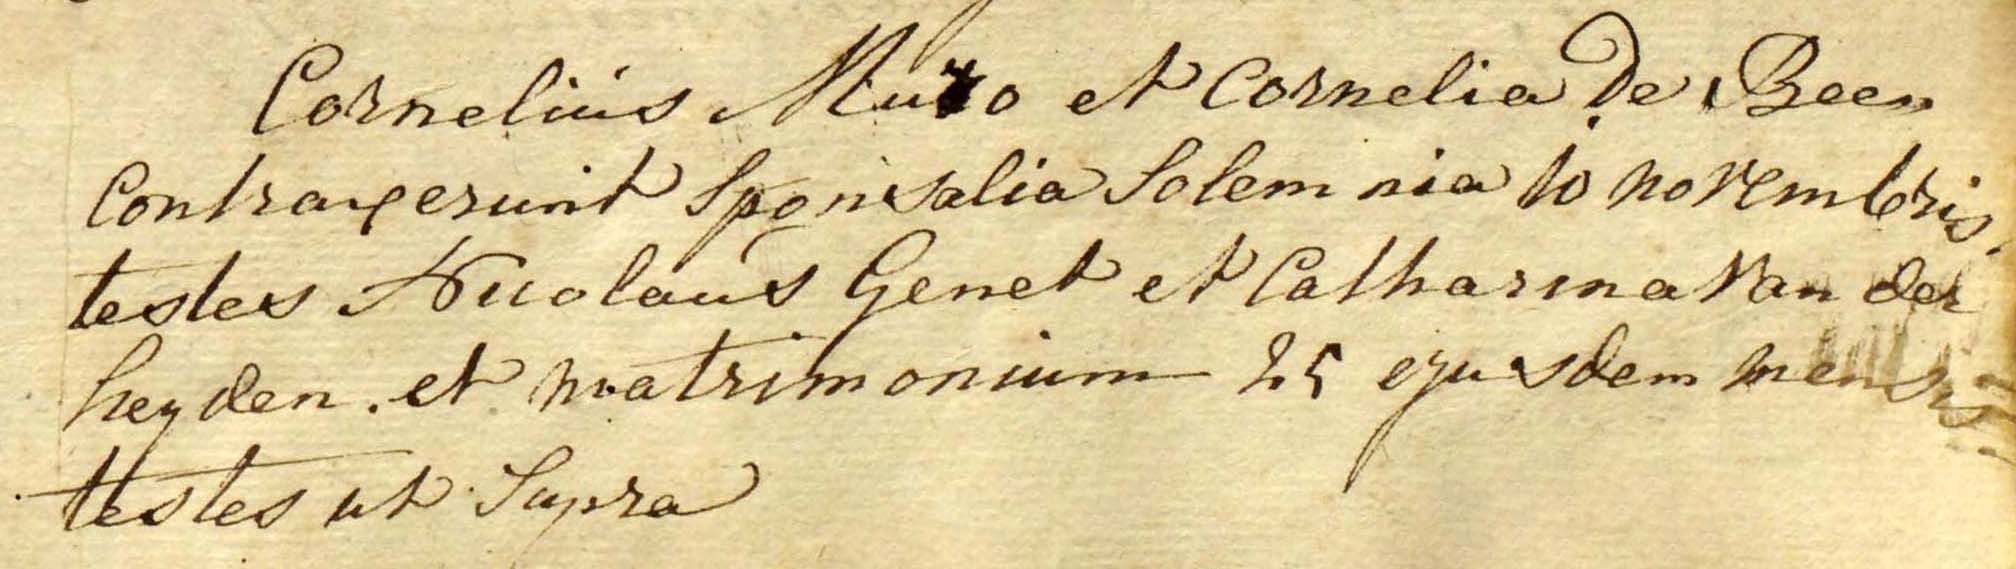 Cornelius Muto et Cornelia De Been
Contraxerunt Sponsalia Solemnia 10 novembris.
testes Nicolaus Genet et Catharina Van der
heyden. et matrimonium 25 ejusdem mensis
testes ut Supra